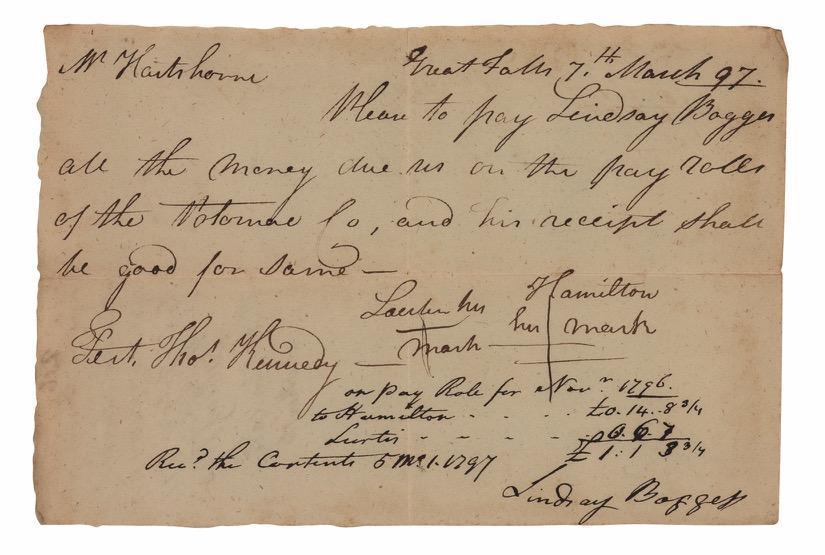 Mr Hartshorne
Great Falls 7.th March 97.
Please to pay Lindsay Bogges
all the money due us on the pay rolls
of the Potomac Co, and his receipt shall
be good for same —
his Hamilton
mark his mark
Test. Thos. Kennedy
on pay Role for Novr. 1796.
to Hamilton - - - £0.14..8 3/4
Curtis - - - - - 0.6.7
£1:1 3 3/4
Recd. the Contents 5 1797
Lindsay Boggess